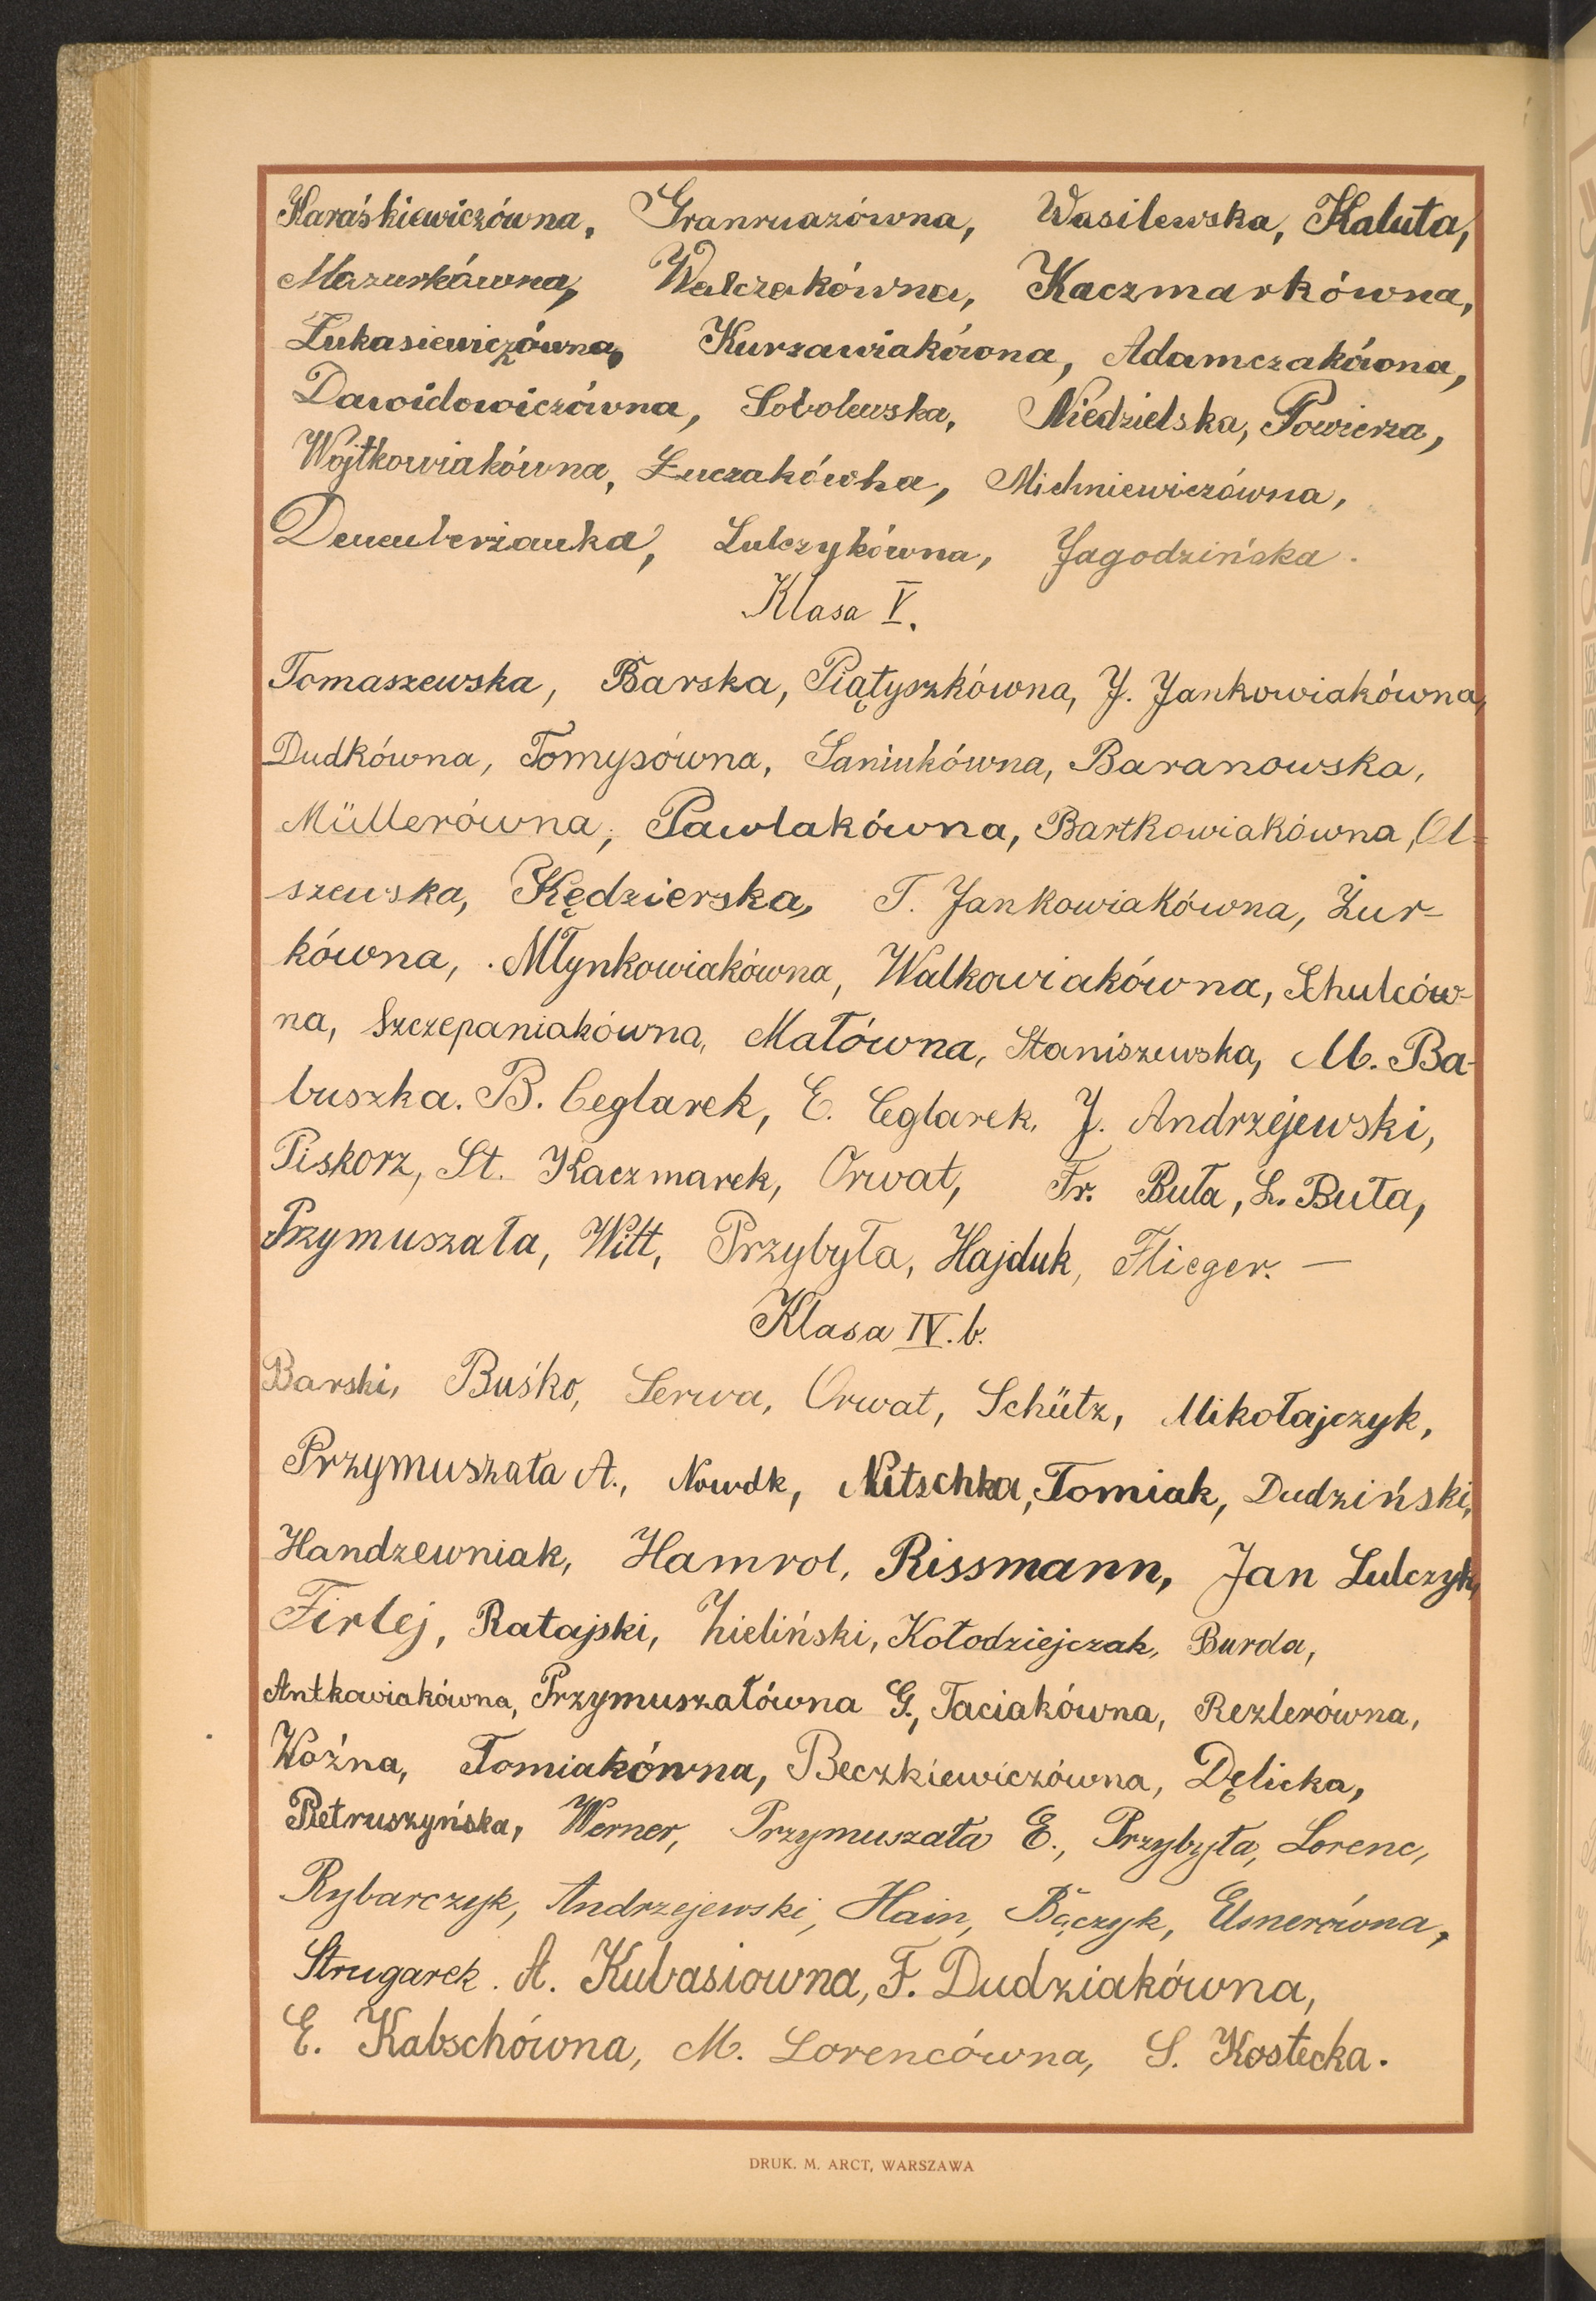 Haraśkiewiczówna, Granruazówna, Wasilewska, Kaluta,
Mazurkówna, Walczakówna, Kaczmarkówna,
Łukasiewiczówna, Kurzawiakówna, Adamczakówna,
Dawidowiczówna, Sobolewska, Niedzielska, Powierza,
Wojtkowiakówna, Łuczakówna, Michniewiczówna,
Lulczykówna, Jagodzińska.
Klasa V.
Tomaszewska, Barska, Piątyszkówna, J. Jankowiakówna,
Dudkówna, Tomysówna, Saniukówna, Baranowska,
Müllerówna, Pawlakówna, Bartkowiakówna, Ol-
szewska, Kędzierska, T. Jankowiakówna, Żur-
kówna, Młynkowiakówna, Walkowiakówna, Schulców-
na, Szczepaniakówna, Matówna, Staniszewska, M. Ba-
buszka. B. Ceglarek, E. Ceglarek, J. Andrzejewski,
Piskorz, St. Kaczmarek, Orwat, Fr. Buła, L. Buła,
Przymuszała, Witt, Przybyła, Hajduk, Flieger. —
Klasa IV. b.
Barski, Buśko, Serwa, Orwat, Schütz, Mikołajczyk,
Przymuszała A., Nowak, Nitschka, Tomiak, Dudziński,
Handzewniak, Hamrol, Rissmann, Jan Lulczyk,
Firlej, Ratajski, Zieliński, Kołodziejczak, Burda,
Antkowiakówna, Przymuszałówna G., Taciakówna, Rezlerówna,
Woźna, Tomiakówna, Beczkiewiczówna, Dęlicka,
Pietruszyńska, Werner, Przymuszała E., Przybyła, Lorenc,
Rybarczyk, Andrzejewski, Hain, Bączyk, Elsnerówna,
Strugarek. A. Kubasiowna, F. Dudziakówna,
E. Kabschówna, M. Lorencówna, S. Kostecka.
DRUK. M. ARCT, WARSZAWA